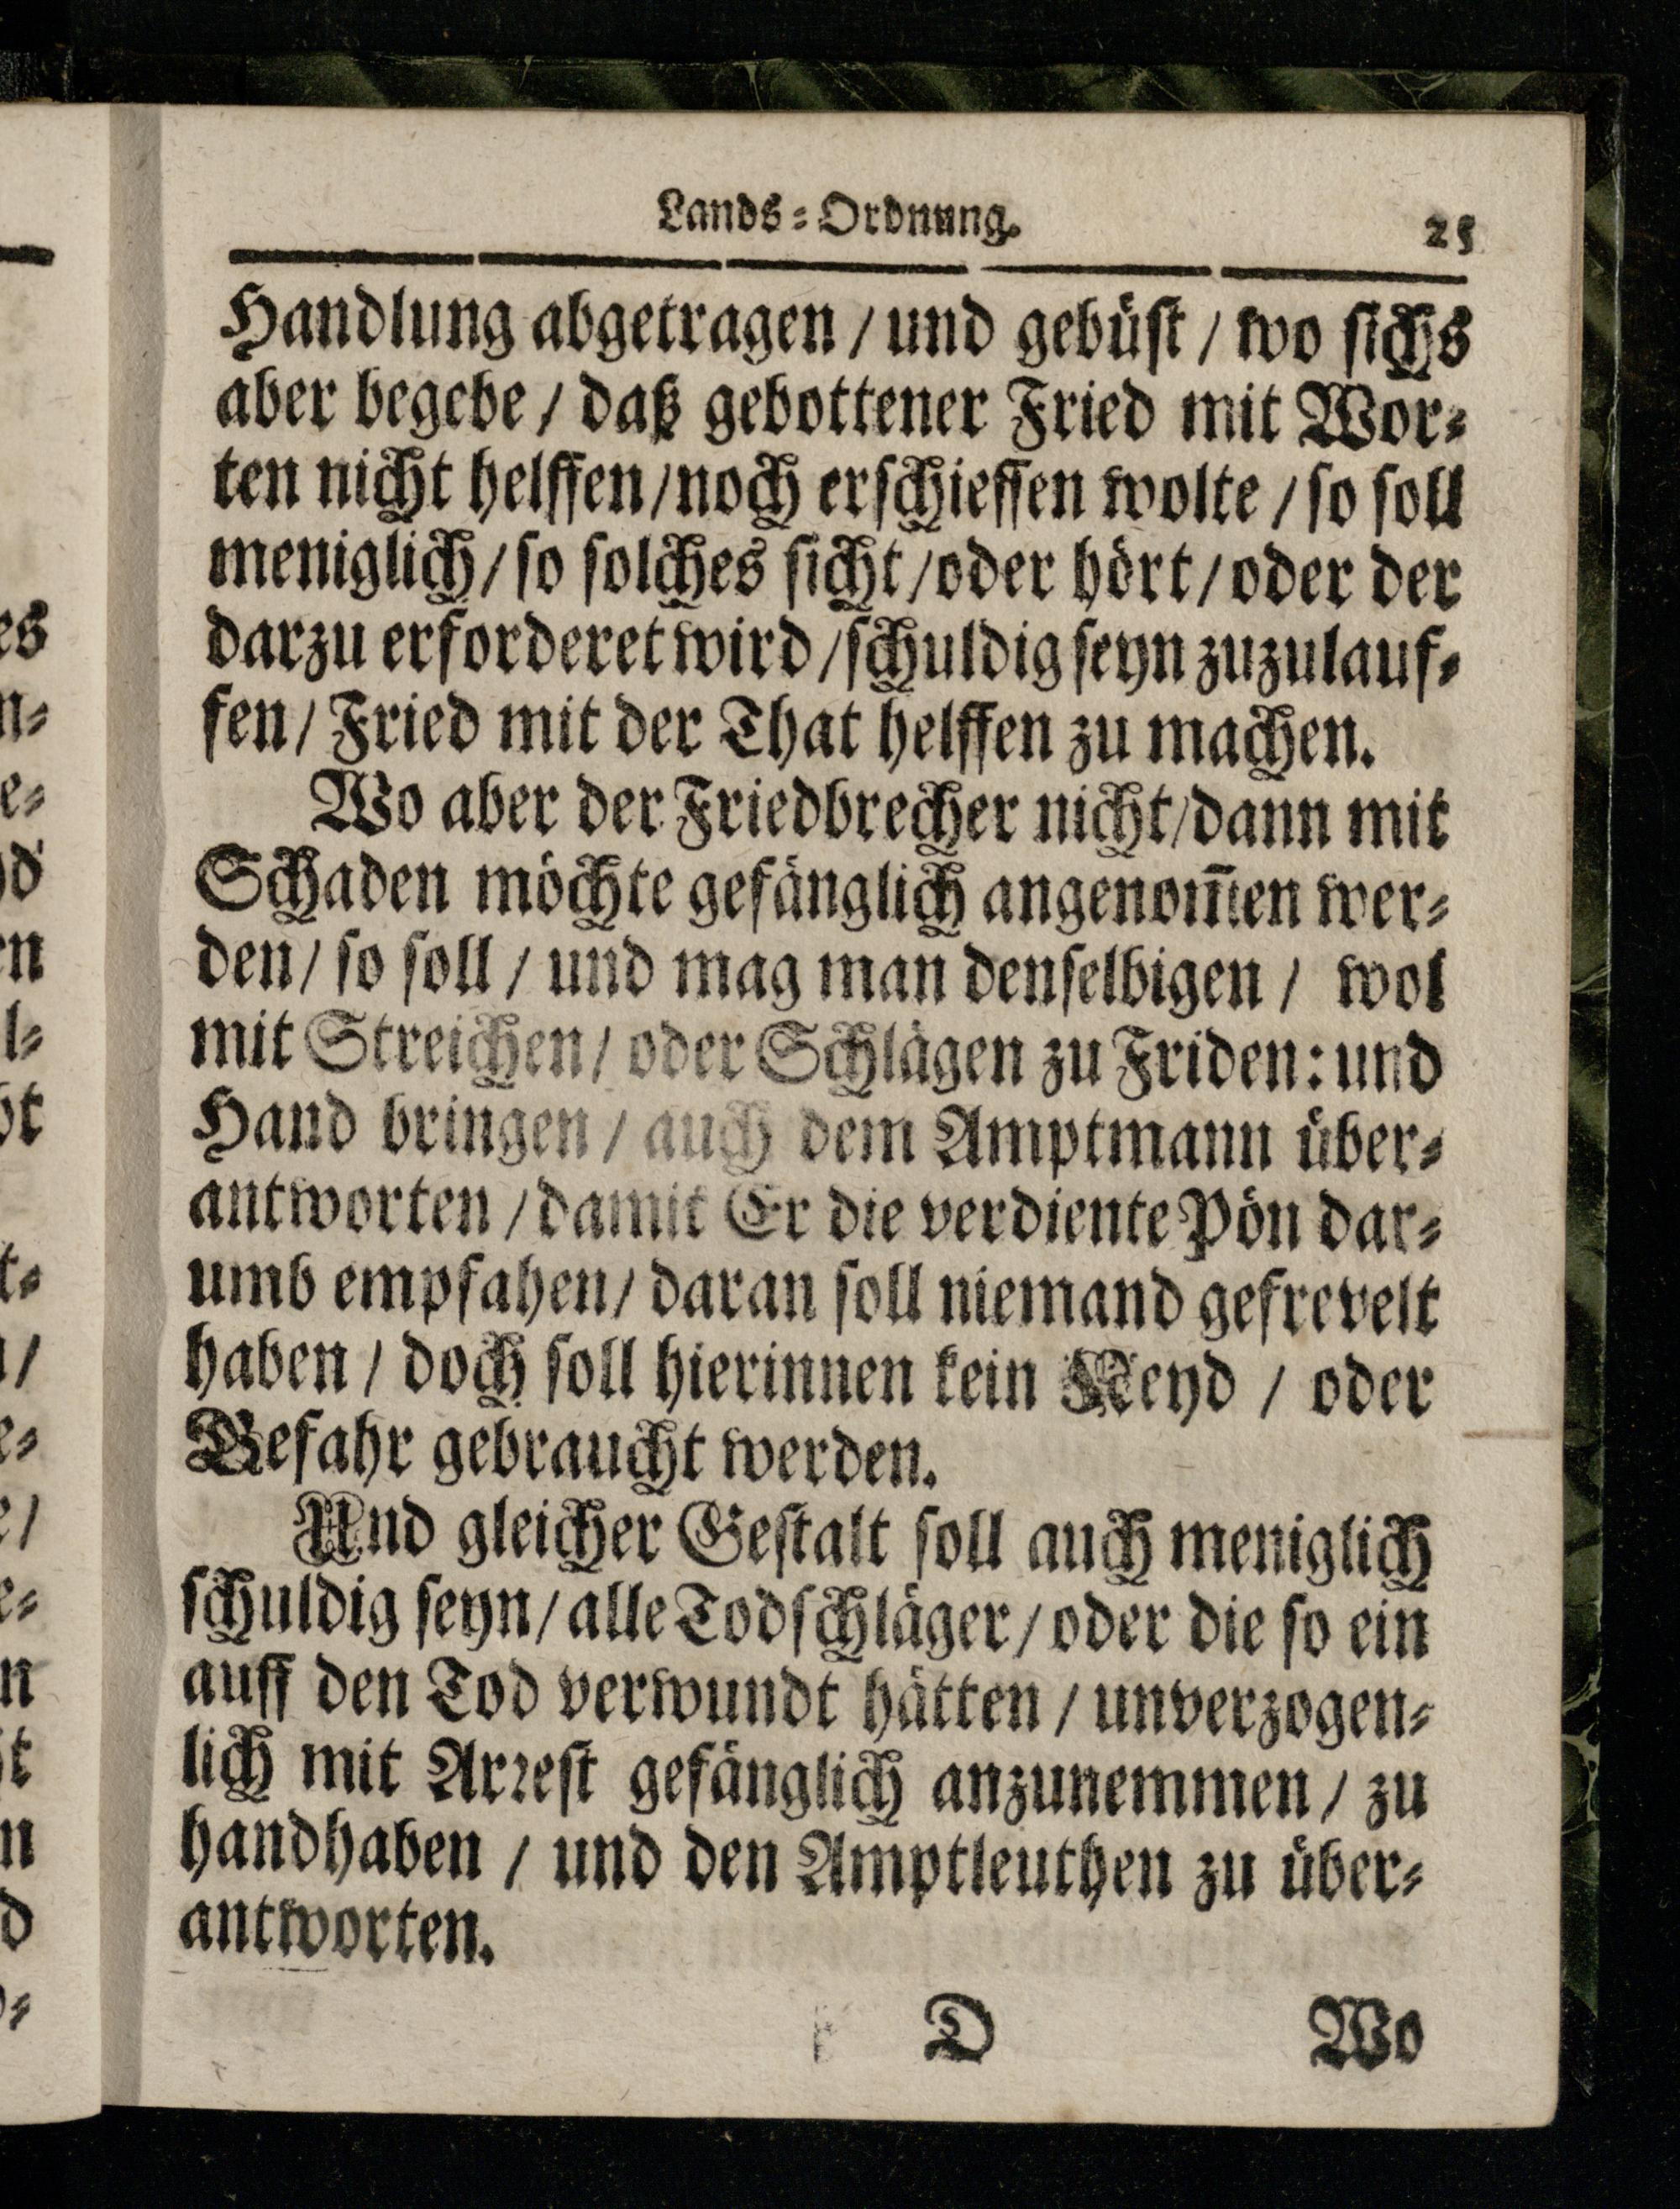 Lands-Ordnung. 25
Handlung abgetragen / und gebüst / wo sichs
aber begebe / daß gebottener Fried mit Wor-
ten nicht helffen / noch erschiessen wolte / so soll
meniglich / so solches sicht / oder hört / oder der
darzu erforderet wird / schuldig seyn zuzulauf-
fen / Fried mit der That helffen zu machen.
Wo aber der Friedbrecher nicht / dann mit
Schaden möchte gefänglich angenom̃en wer-
den / so soll / und mag man denselbigen / wol
mit Streichen / oder Schlägen zu Friden: und
Hand bringen / auch dem Amptmann über-
antworten / damit Er die verdiente Pön dar-
umb empfahen / daran soll niemand gefrevelt
haben / doch soll hierinnen kein Neyd / oder
Gefahr gebraucht werden.
Und gleicher Gestalt soll auch meniglich
schuldig seyn / alle Todschläger / oder die so ein
auff den Tod verwundt hätten / unverzogen-
lich mit Arrest gefänglich anzunemmen / zu
handhaben / und den Amptleuthen zu über-
antworten.
D Wo